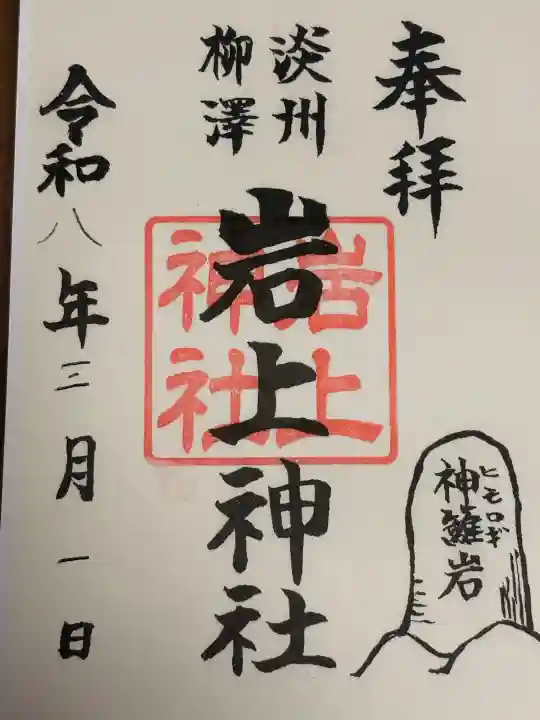 奉拝
淡州
柳澤
岩上神社
岩上
神社
令和八年三月一日
ヒモロギ
神籬岩